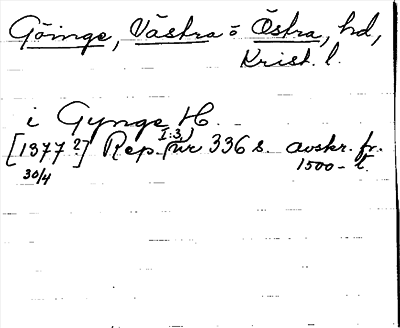 Göinge, Västra o Östra, hd,
Krist. l.
i Gynge H.
[1377?] Rep. I:3) nr 336 s. avskr. fr.
30/4 1500-t.